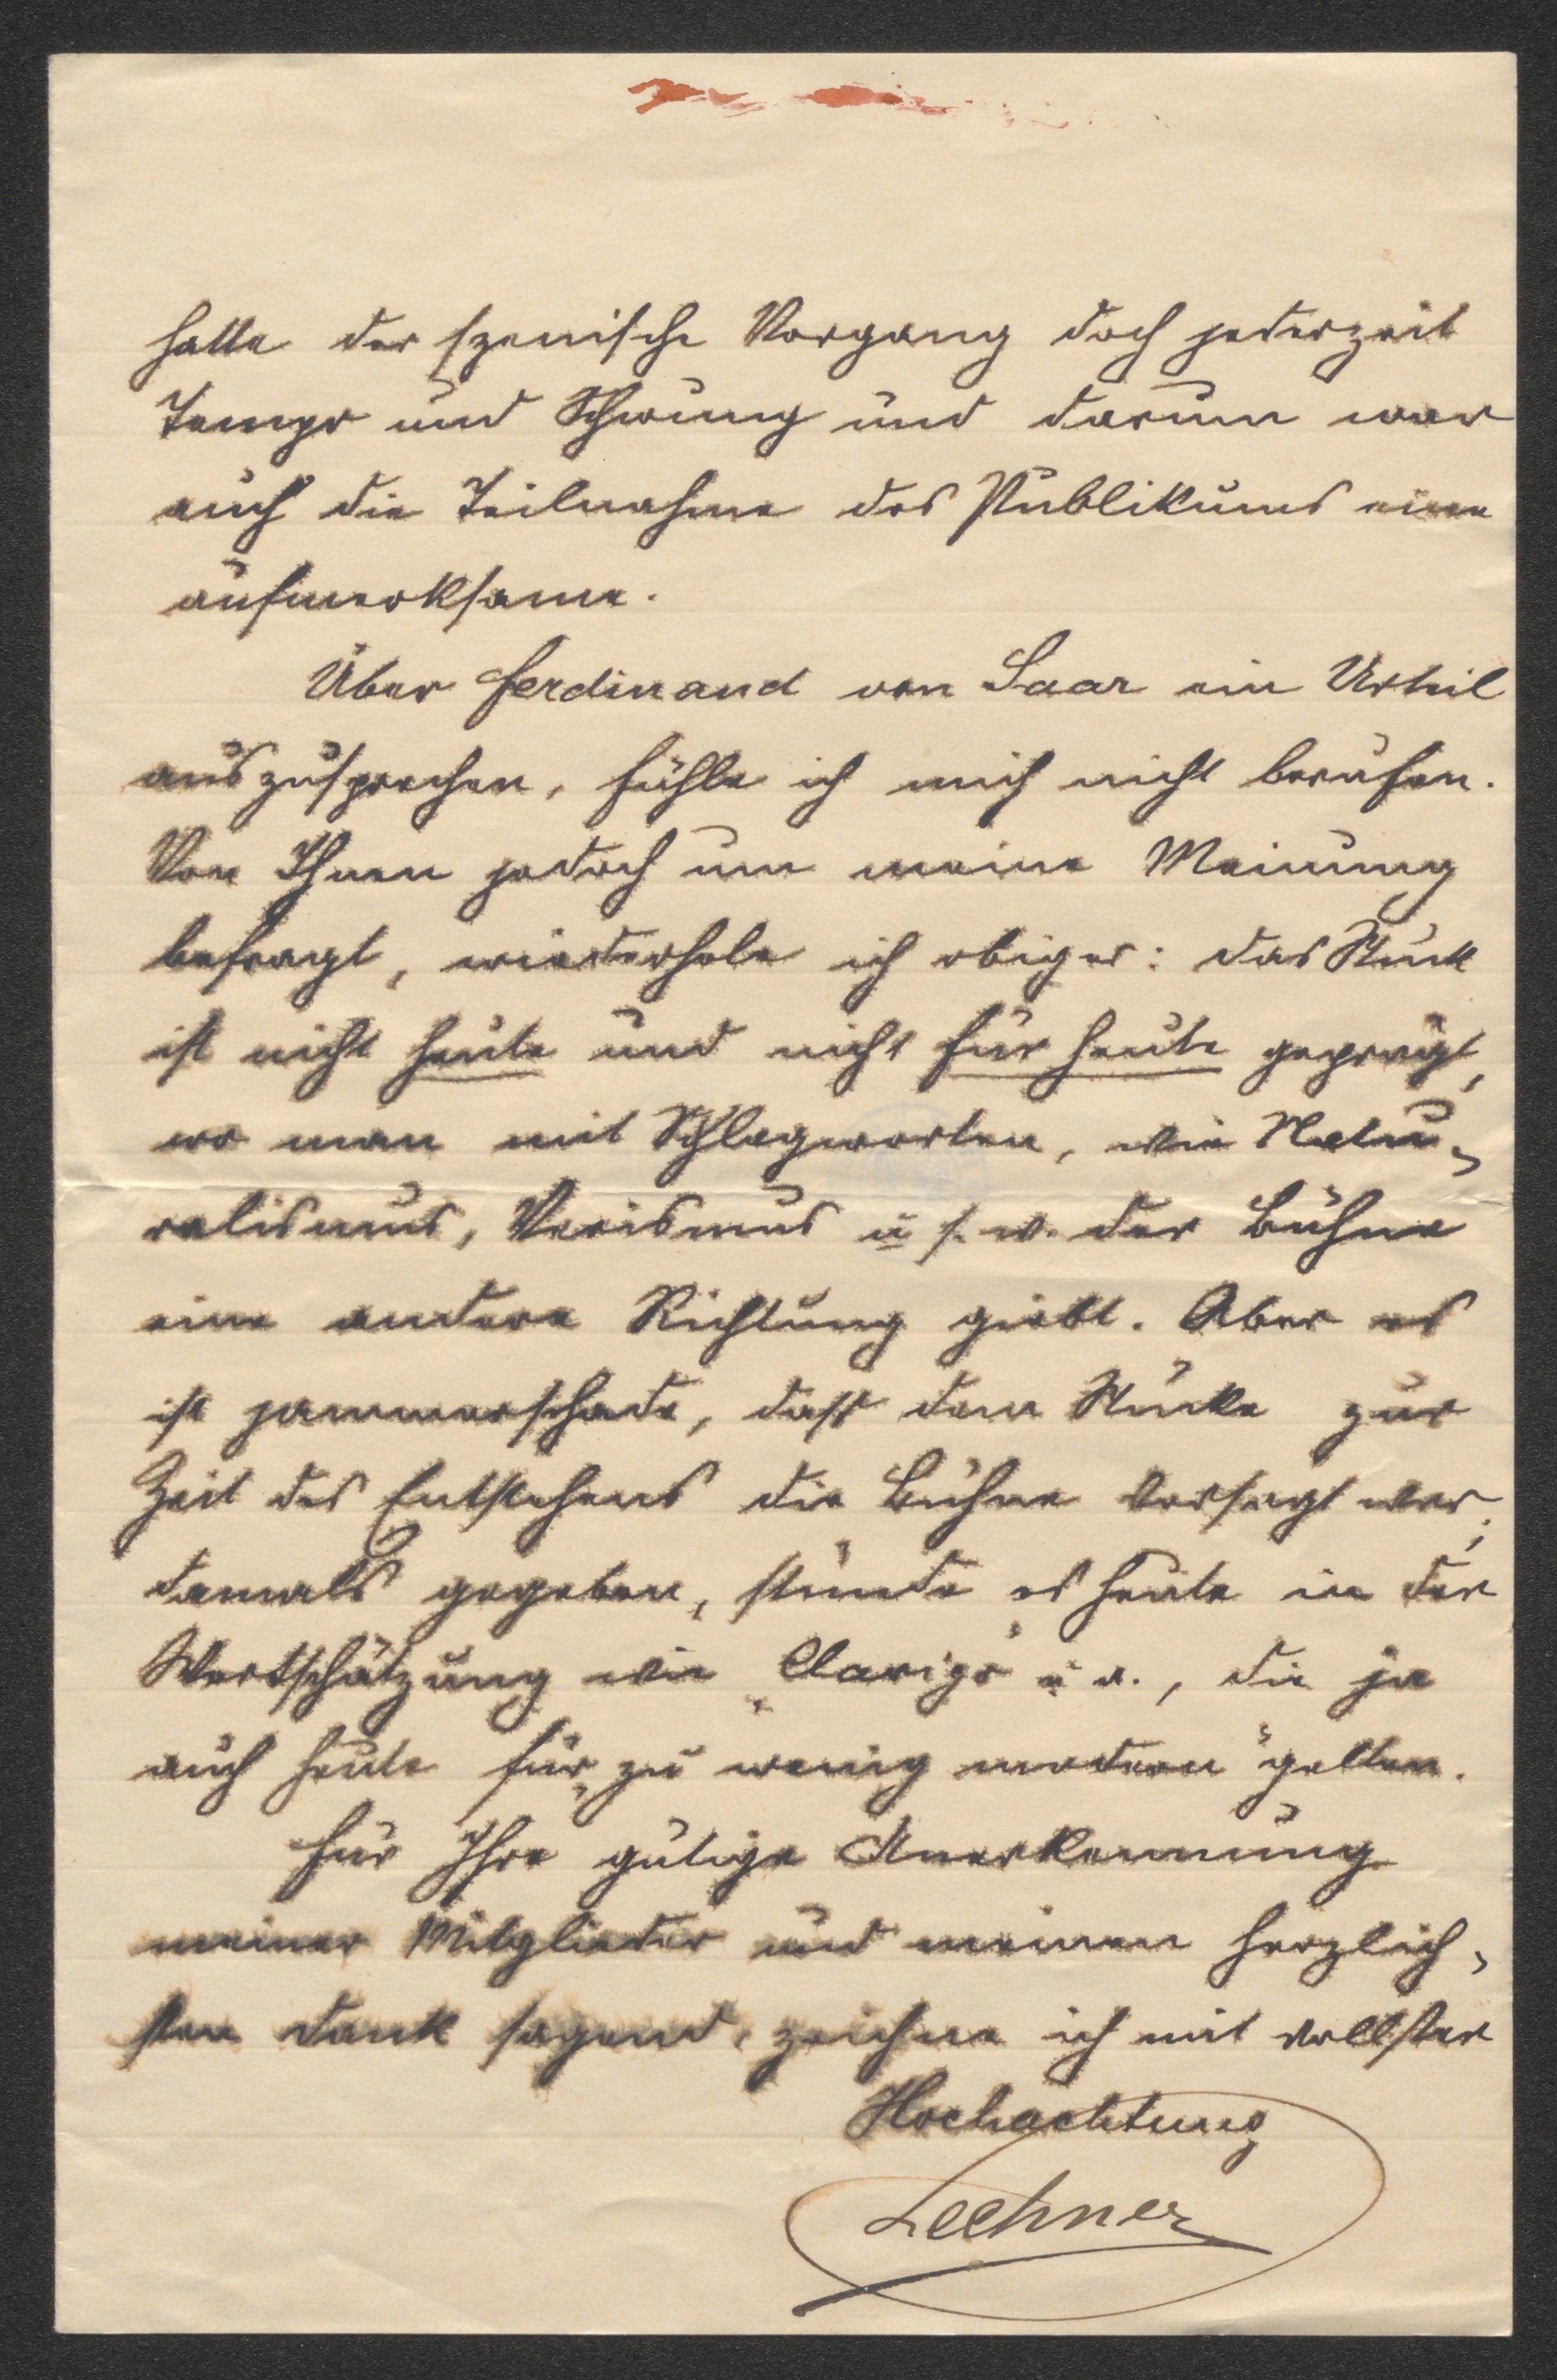 hatte der szenische Vorgang doch jederzeit
Tempo und Schwung und darum war
auch die Teilnahme des Publikums eine
aufmerksame.
Über Ferdinand von Saar ein Urteil
auszusprechen, fühle ich mich nicht berufen.
Von Ihnen jedoch um meine Meinung
befragt, wiederhole ich obiges: das Stück
ist nicht heute und nicht für heute geprägt,
wo man mit Schlagworten, wie Natu-
ralismus, Verismus u s. w. der Bühne
eine andere Richtung giebt. Aber es
ist jammerschade, dass dem Stücke zur
Zeit des Entstehens die Bühne versagt war;
damals gegeben, stünde es heute in der
Wertschätzung wie „Clavigo" u a., die ja
auch heute für „zu wenig modern" gelten.
Für Ihre gütige Anerkennung
meiner Mitglieder und meinen herzlich-
sten Dank sagend, zeichne ich mit vollster
Hochachtung
Lechner